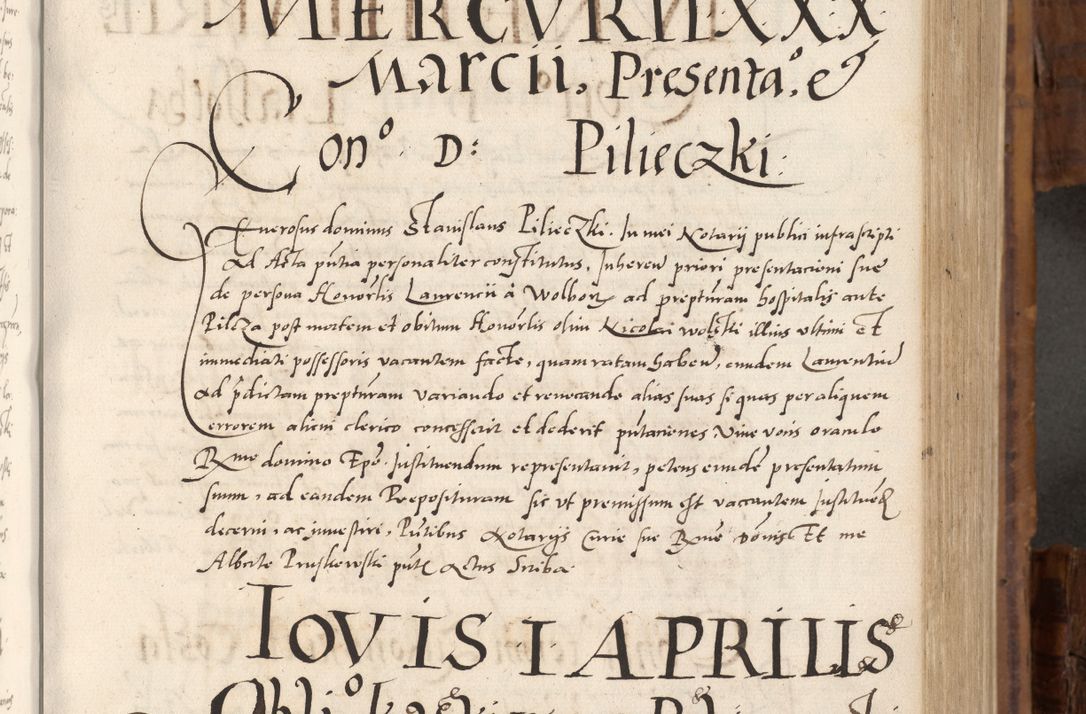 MERCVRII XXX
Marcii. Presenta.º eͨ
Conº. D: Pilieczki.
Generosus dominus Stanislaus Pilieczki. In mei Notarij publici infrascripti
Ad Acta pñtia personaliter constitutus, Inheren priori presentacioni sue
de persona Honorlis Laurencii à Wolborz ad prepturam hospitalis ante
Pilcza post mortem et obitum Honorlis olim Nicolai Wolski illius ultimi et
immediati possessoris vacantem facte, quam ratam haben, eundem Laurentiu
Ad pdictam prepturam variando et revocando alias suas si quas per aliquem
errorem alicui clerico concesserit et dederit pñtaciones, Vive vocis oraculo
Rme domino Epo. Instituendum representavit, petens eunde presentatum
suum, ad eandem Preposituram sic ut premissum est vaccantem Instituen
decerni, ac investiri, Pñtibus Notarijs Curie sue Rme Donis Et me
Albcte Pruskowski pñt Actus Scriba
IOVIS I APRILIS